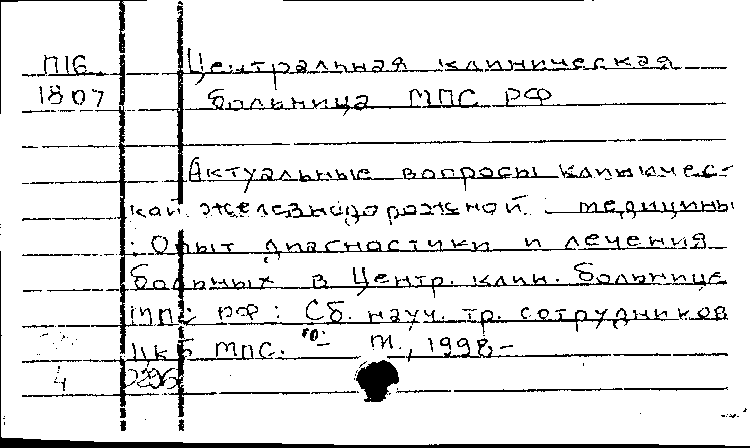 П16 Центральная клиническая
1807 больница МПС РФ
Актуальные вопросы клиничес-
кой железнодорожной медицины
: Опыт диагностики и лечения
больных в Центр. клин. больнице
МПС РФ: Сб. науч. тр. сотрудников
ЦКБ МПС. М., 1998-
4